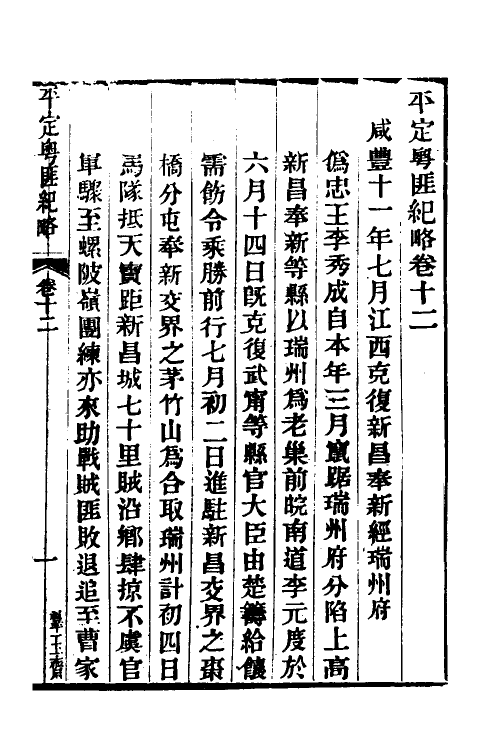 平定粵匪紀略卷十二
咸豐十一年七月江西克復新昌奉新經瑞州府
僞忠王李秀成自本年三月竄踞瑞州府分陷上高
新昌奉新等縣以瑞州爲老巢前皖南道李元度於
六月十四日旣克復武甯等縣官大臣由楚籌給饟
需飭令乘勝前行七月初二日進駐新昌交界之棗
橋分屯奉新交界之茅竹山爲合取瑞州計初四日
馬隊抵天寶距新昌城七十里賊沿鄉肆掠不虞官
軍驟至螺陂嶺團練亦來助戰賊匪敗退追至曹家
平定粵匪紀略
卷十二
一
羣玉齋